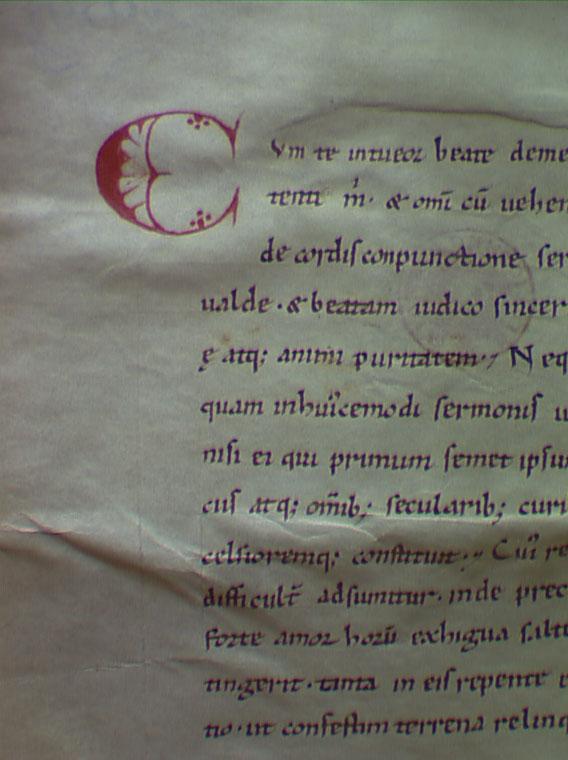 Cum te intueor beate deme
tenti m̄. & omī cū uehen
de cordis conpunctione ser
ualde. & beatam iudico sincer
ę atq; animi puritatem. Neq
quam inhuīcemodi sermonis u
nisi ei qui primum semet ipsu
cus atq; om̄ib; secularib; curi
celsioremq; constituit. Cuī re
difficult̄ adsumitur. inde prec
forte amor horū exhigua salte
tingerit. tanta in eis repente e
tio. ut confestim terrena relinq